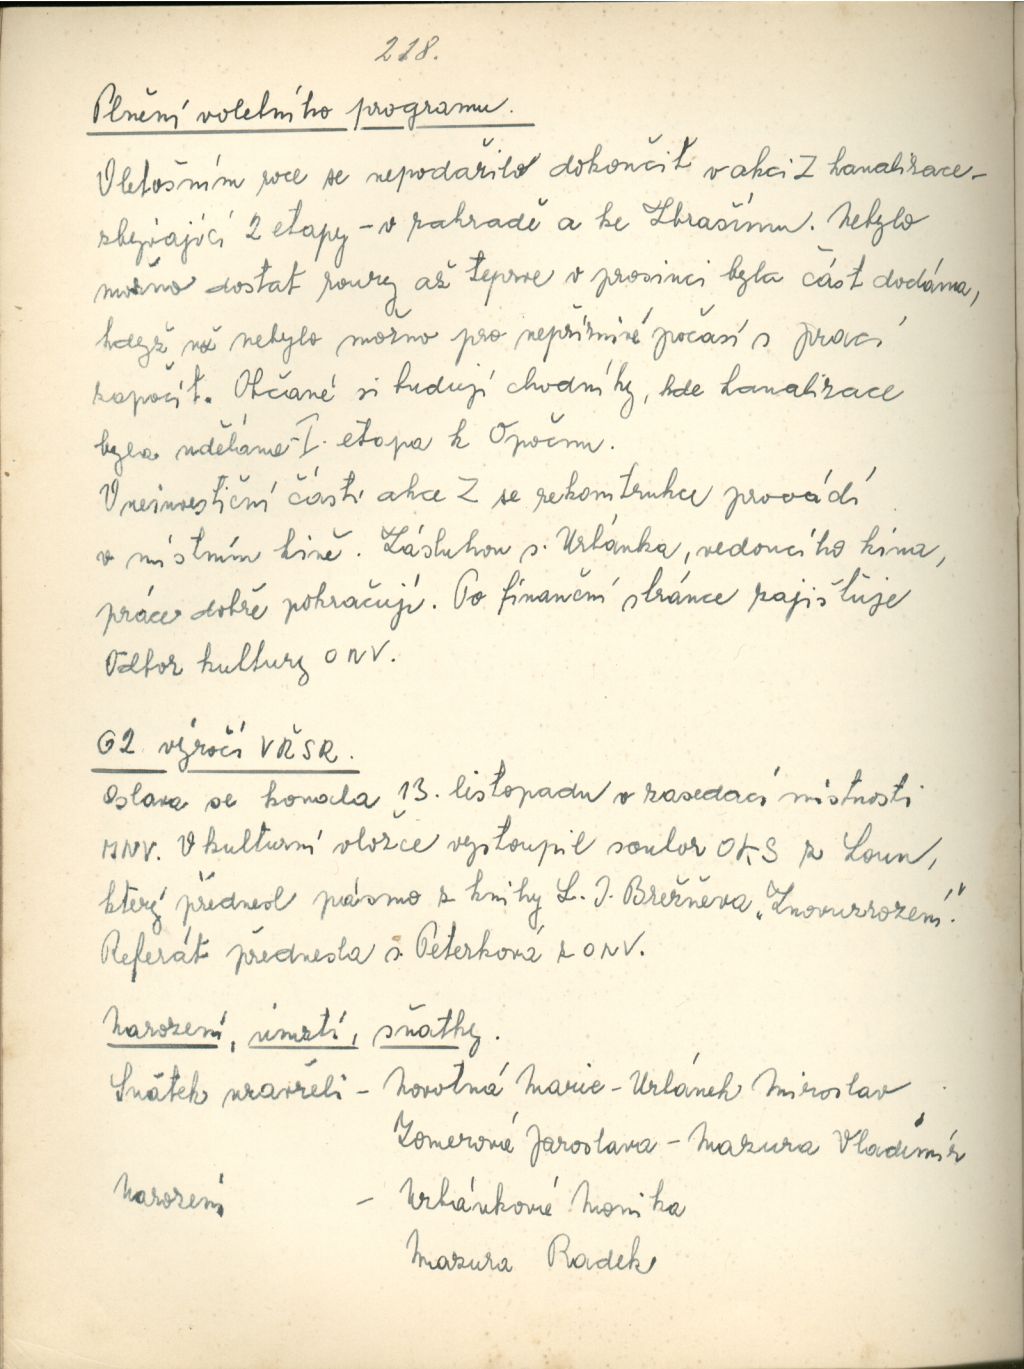 218.
Plnění volebního programu.
V letošním roce se nepodařilo dokončit v akci Z kanalizace-
zbývající 2 etapy - v zahradě a ke Zbrašínu. Nebylo
možno dostat roury až teprve v prosinci byla část dodána,
když už nebylo možno pro nepříznivé počasí s prací
započít. Občané si budují chodníky, kde kanalizace
byla udělána - I. etapa k Opočnu.
V neinvestiční části akce Z se rekonstrukce provádí
v místním kině. Zásluhou s. Urbánka, vedoucího kina,
práce dobře pokračují. Po finanční stránce zajišťuje
Odbor kultury ONV.
62. výročí VŘSR.
Oslava se konala 13. listopadu v zasedací místnosti
MNV. V kulturní vložce vystoupil soubor OKS z Loun,
který přednesl pásmo z knihy L. I. Brežněva „Znovuzrození".
Referát přednesla s. Peterková z ONV.
Narození, úmrtí, sňatky.
Sňatek uzavřeli - Novotná Marie - Urbánek Miroslav
Zomerová Jaroslava - Mazura Vladimír
Narození - Urbánková Monika
Mazura Radek